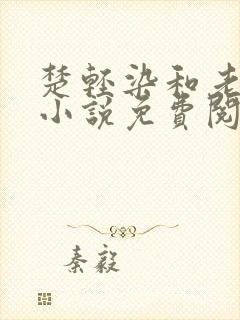 楚轻染和老
小說免費閱
秦毅